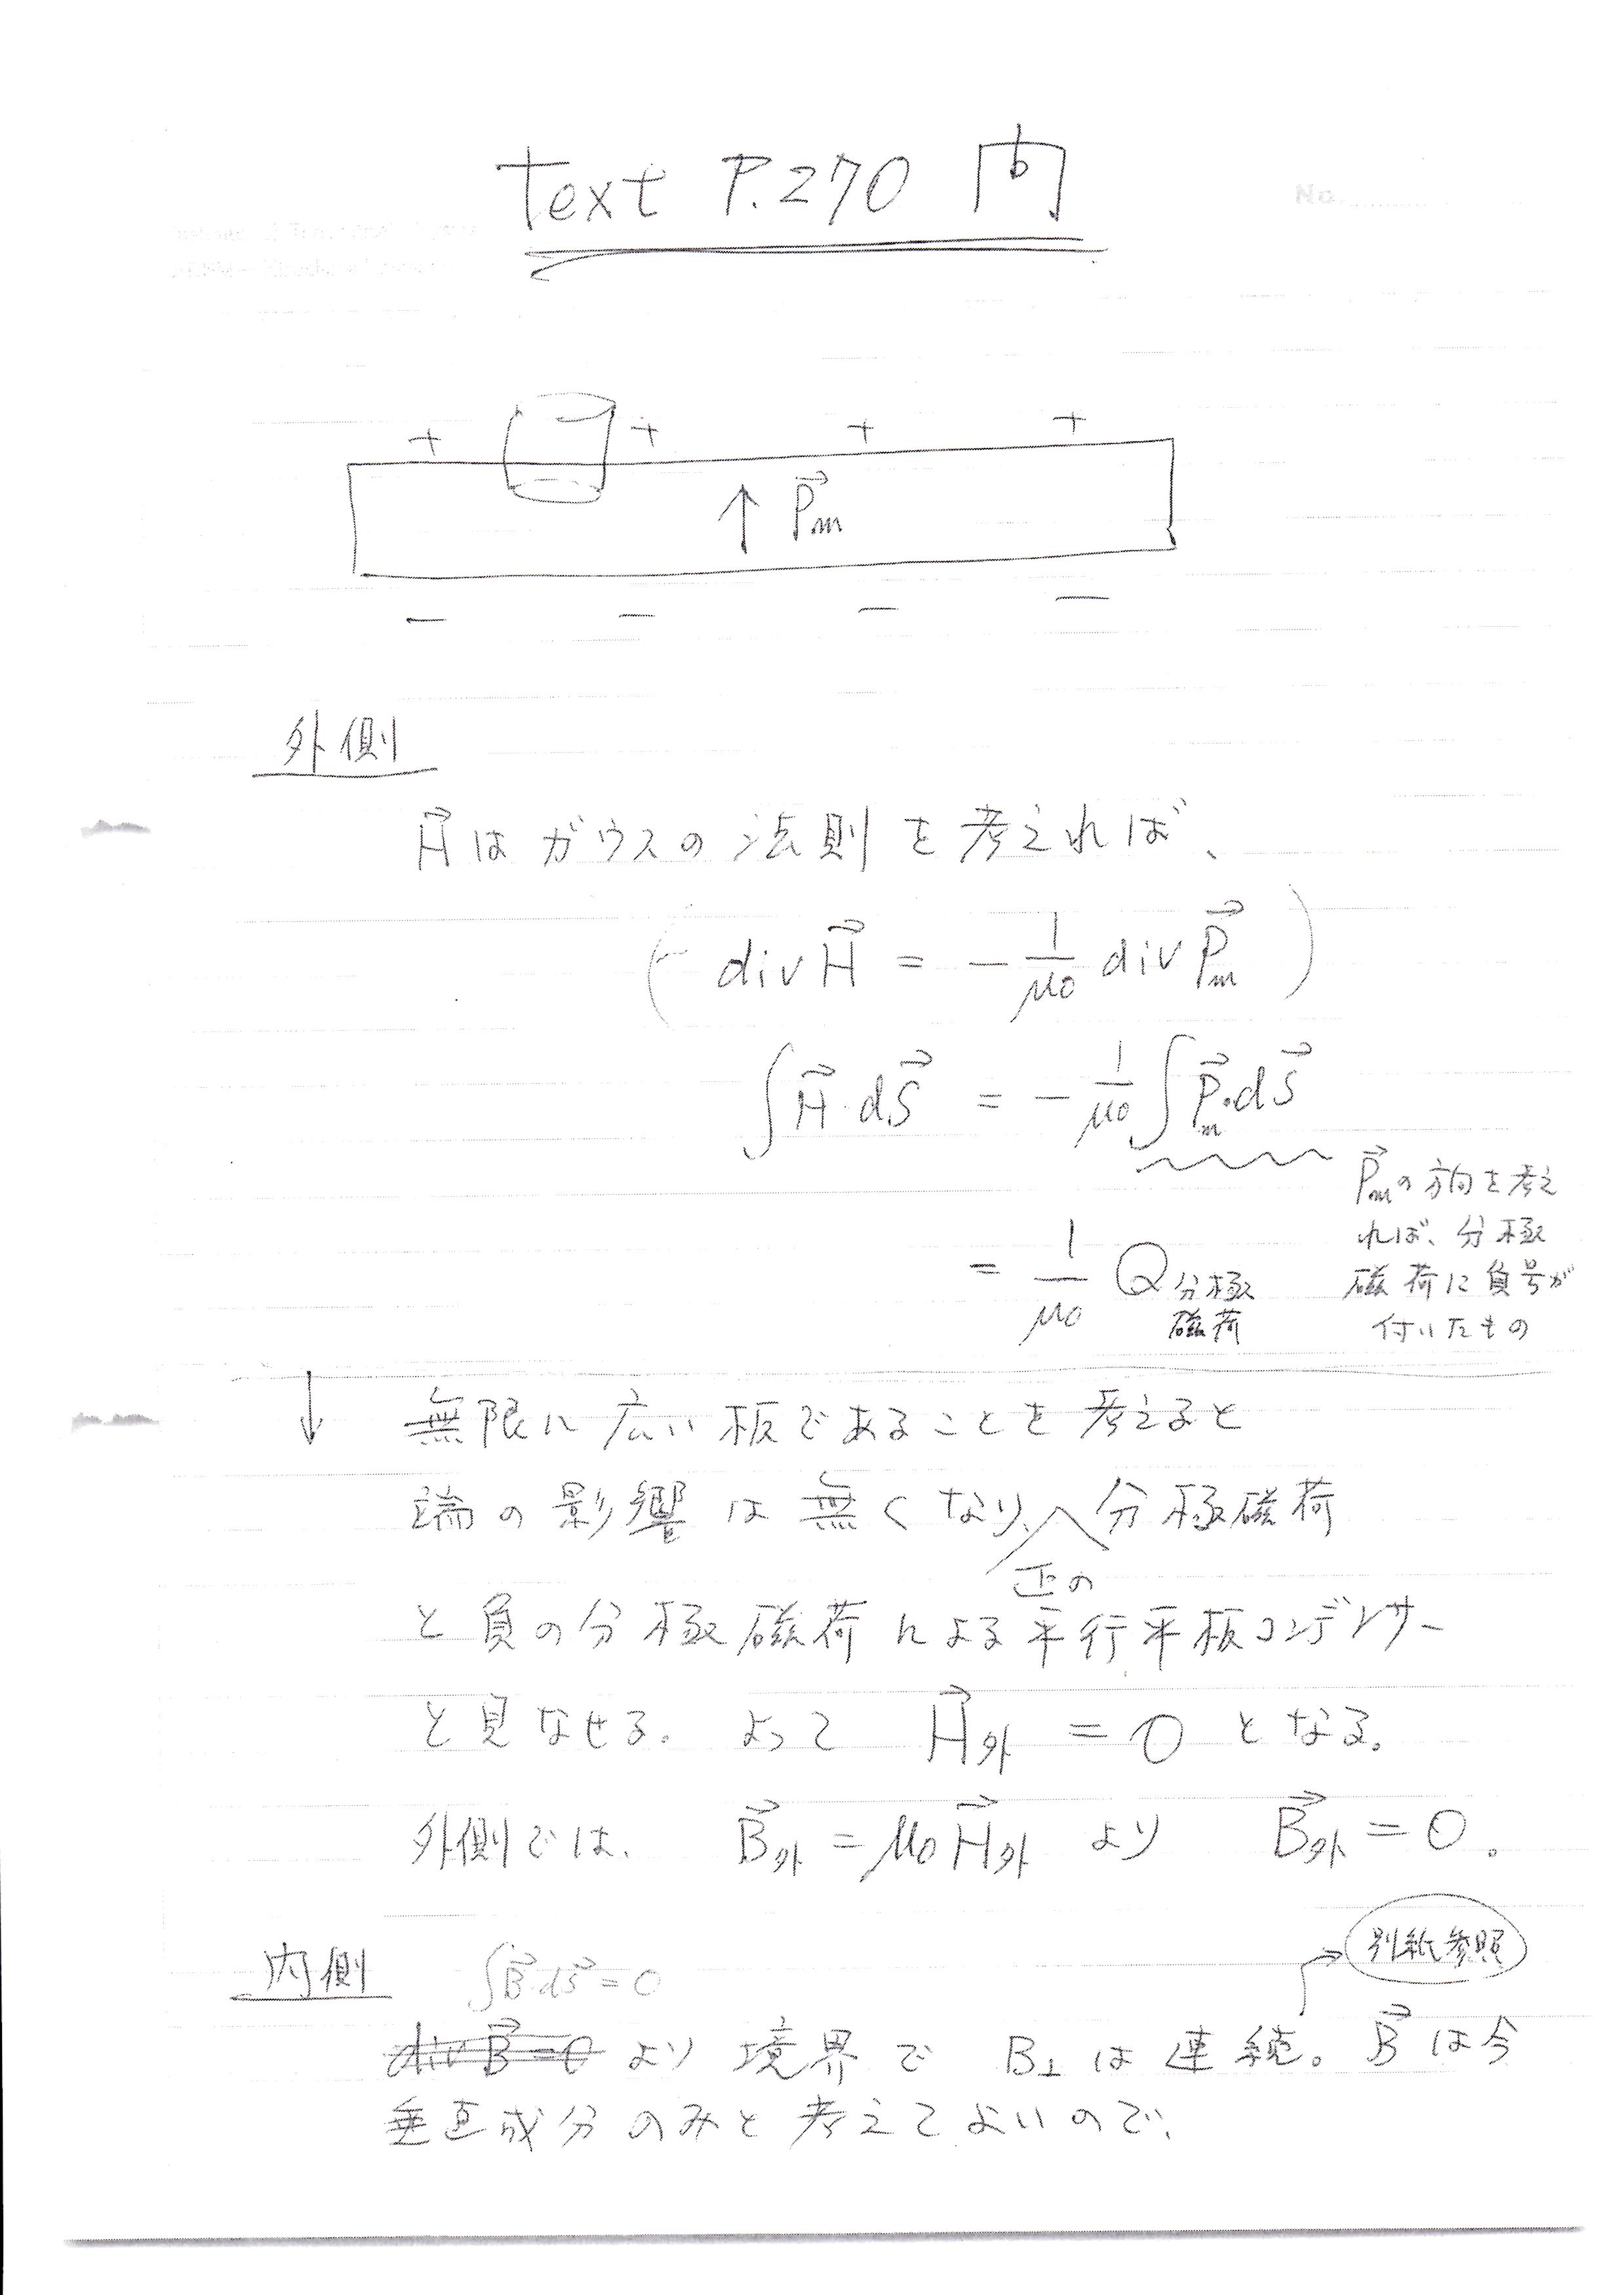 Text P.270 問
No.
+ + + +
P⃗m
− − − −
外側
H⃗はガウスの法則を考えれば、
( div H⃗ = − 1/μ0 div P⃗m )
∫H⃗・dS⃗ = − 1/μ0 ∫P⃗m・dS⃗
P⃗mの方向を考え
れば、分極
磁荷に負号が
付いたもの
= 1/μ0 Q分極磁荷
↓ 無限に広い板であることを考えると
端の影響は無くなり、正の分極磁荷
と負の分極磁荷による平行平板コンデンサー
と見なせる。よって H⃗外 = 0 となる。
外側では、 B⃗外 = μ0 H⃗外 より B⃗外 = 0。
別紙参照
内側 ∫B⃗・dS⃗ = 0
div B⃗ = 0 より 境界で B⊥は連続。B⃗は今
垂直成分のみと考えてよいので、